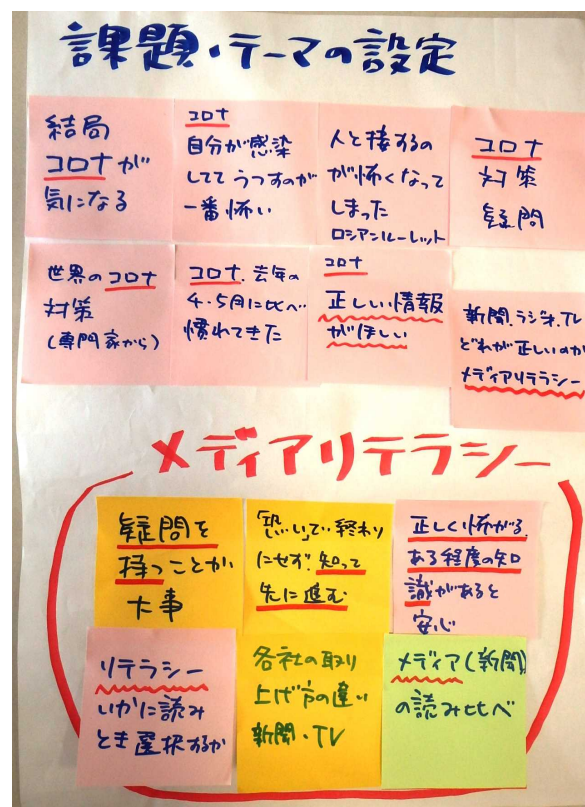 課題・テーマの設定
結局
コロナが
気になる
コロナ
自分が感染
しててうつすのが
一番怖い
人と接するの
が怖くなって
しまった
ロシアンルーレット
コロナ
対策
疑問
世界のコロナ
対策
(専門家から)
コロナ、去年の
4・5月に比べ
慣れてきた
コロナ
正しい情報
がほしい
新聞、ラジオ、TV
どれが正しいのか
メディアリテラシー
メディアリテラシー
疑問を
持つことが
大事
「恐い」で終わり
にせず、知って
先に進む
正しく怖がる、
ある程度の知
識があると
安心
リテラシー
いかに読み
とき選択するか
各社の取り
上げ方の違い
新聞・TV
メディア(新聞)
の読み比べ